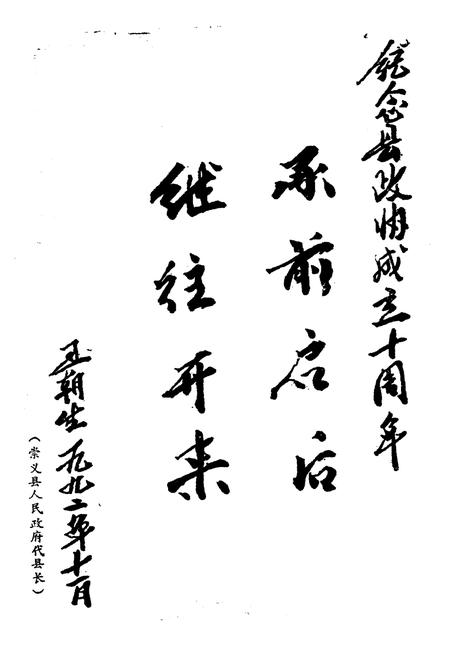 纪念县政协成立十周年
承前启后
继往开来
王朝生 一九九二年十一月
(崇义县人民政府代县长)